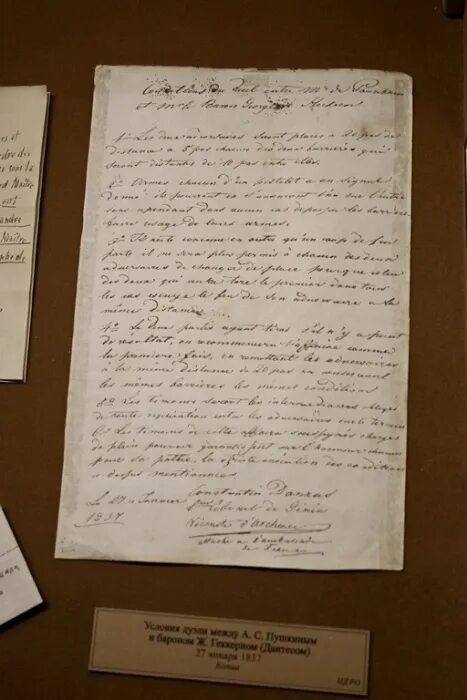 et
dre dis
Conditions du Duel entre Mr de Pouschkin
et Mr le Baron Georges de Heckeren
1° Les deux adversaires seront placés à 20 pas de
distance à 5 pas chacun des deux barrières qui
seront distantes de 10 pas entre elles.
2° Armés chacun d'un pistolet à un signal
donné ils pourront en s'avançant l'un sur l'autre
sans cependant dans aucun cas dépasser les barrières
faire usage de leurs armes.
3° Il reste convenu en outre qu'un coup de feu
parti il ne sera plus permis à chacun des deux
adversaires de changer de place pour que celui
des deux qui aura tiré le premier dans tous
les cas essuye le feu de son adversaire à la
même distance.
4° Les deux partis ayant tirés s'il n'y a point
de résultat, on recommencera l'affaire comme
la première fois, en remettant les adversaires
à la même distance de 20 pas en conservant
les mêmes barrières les mêmes conditions
5° Les témoins seront les intermédiaires obligés
de toute explication entre les adversaires sur le terrain
6° Les témoins de cette affaire soussignés chargés
de pleins pouvoirs garantissent sur l'honneur chacun
pour sa partie, la stricte exécution des conditions
ci-dessus mentionnées.
Le 27 Janvier
1837
Constantin Danzas
Lt Colonel du Génie
Vicomte d'Archiac
attaché à l'ambassade
de France
Условия дуэли между А. С. Пушкиным
и бароном Ж. Геккерном (Дантесом)
27 января 1837
Копия
ЦГРО